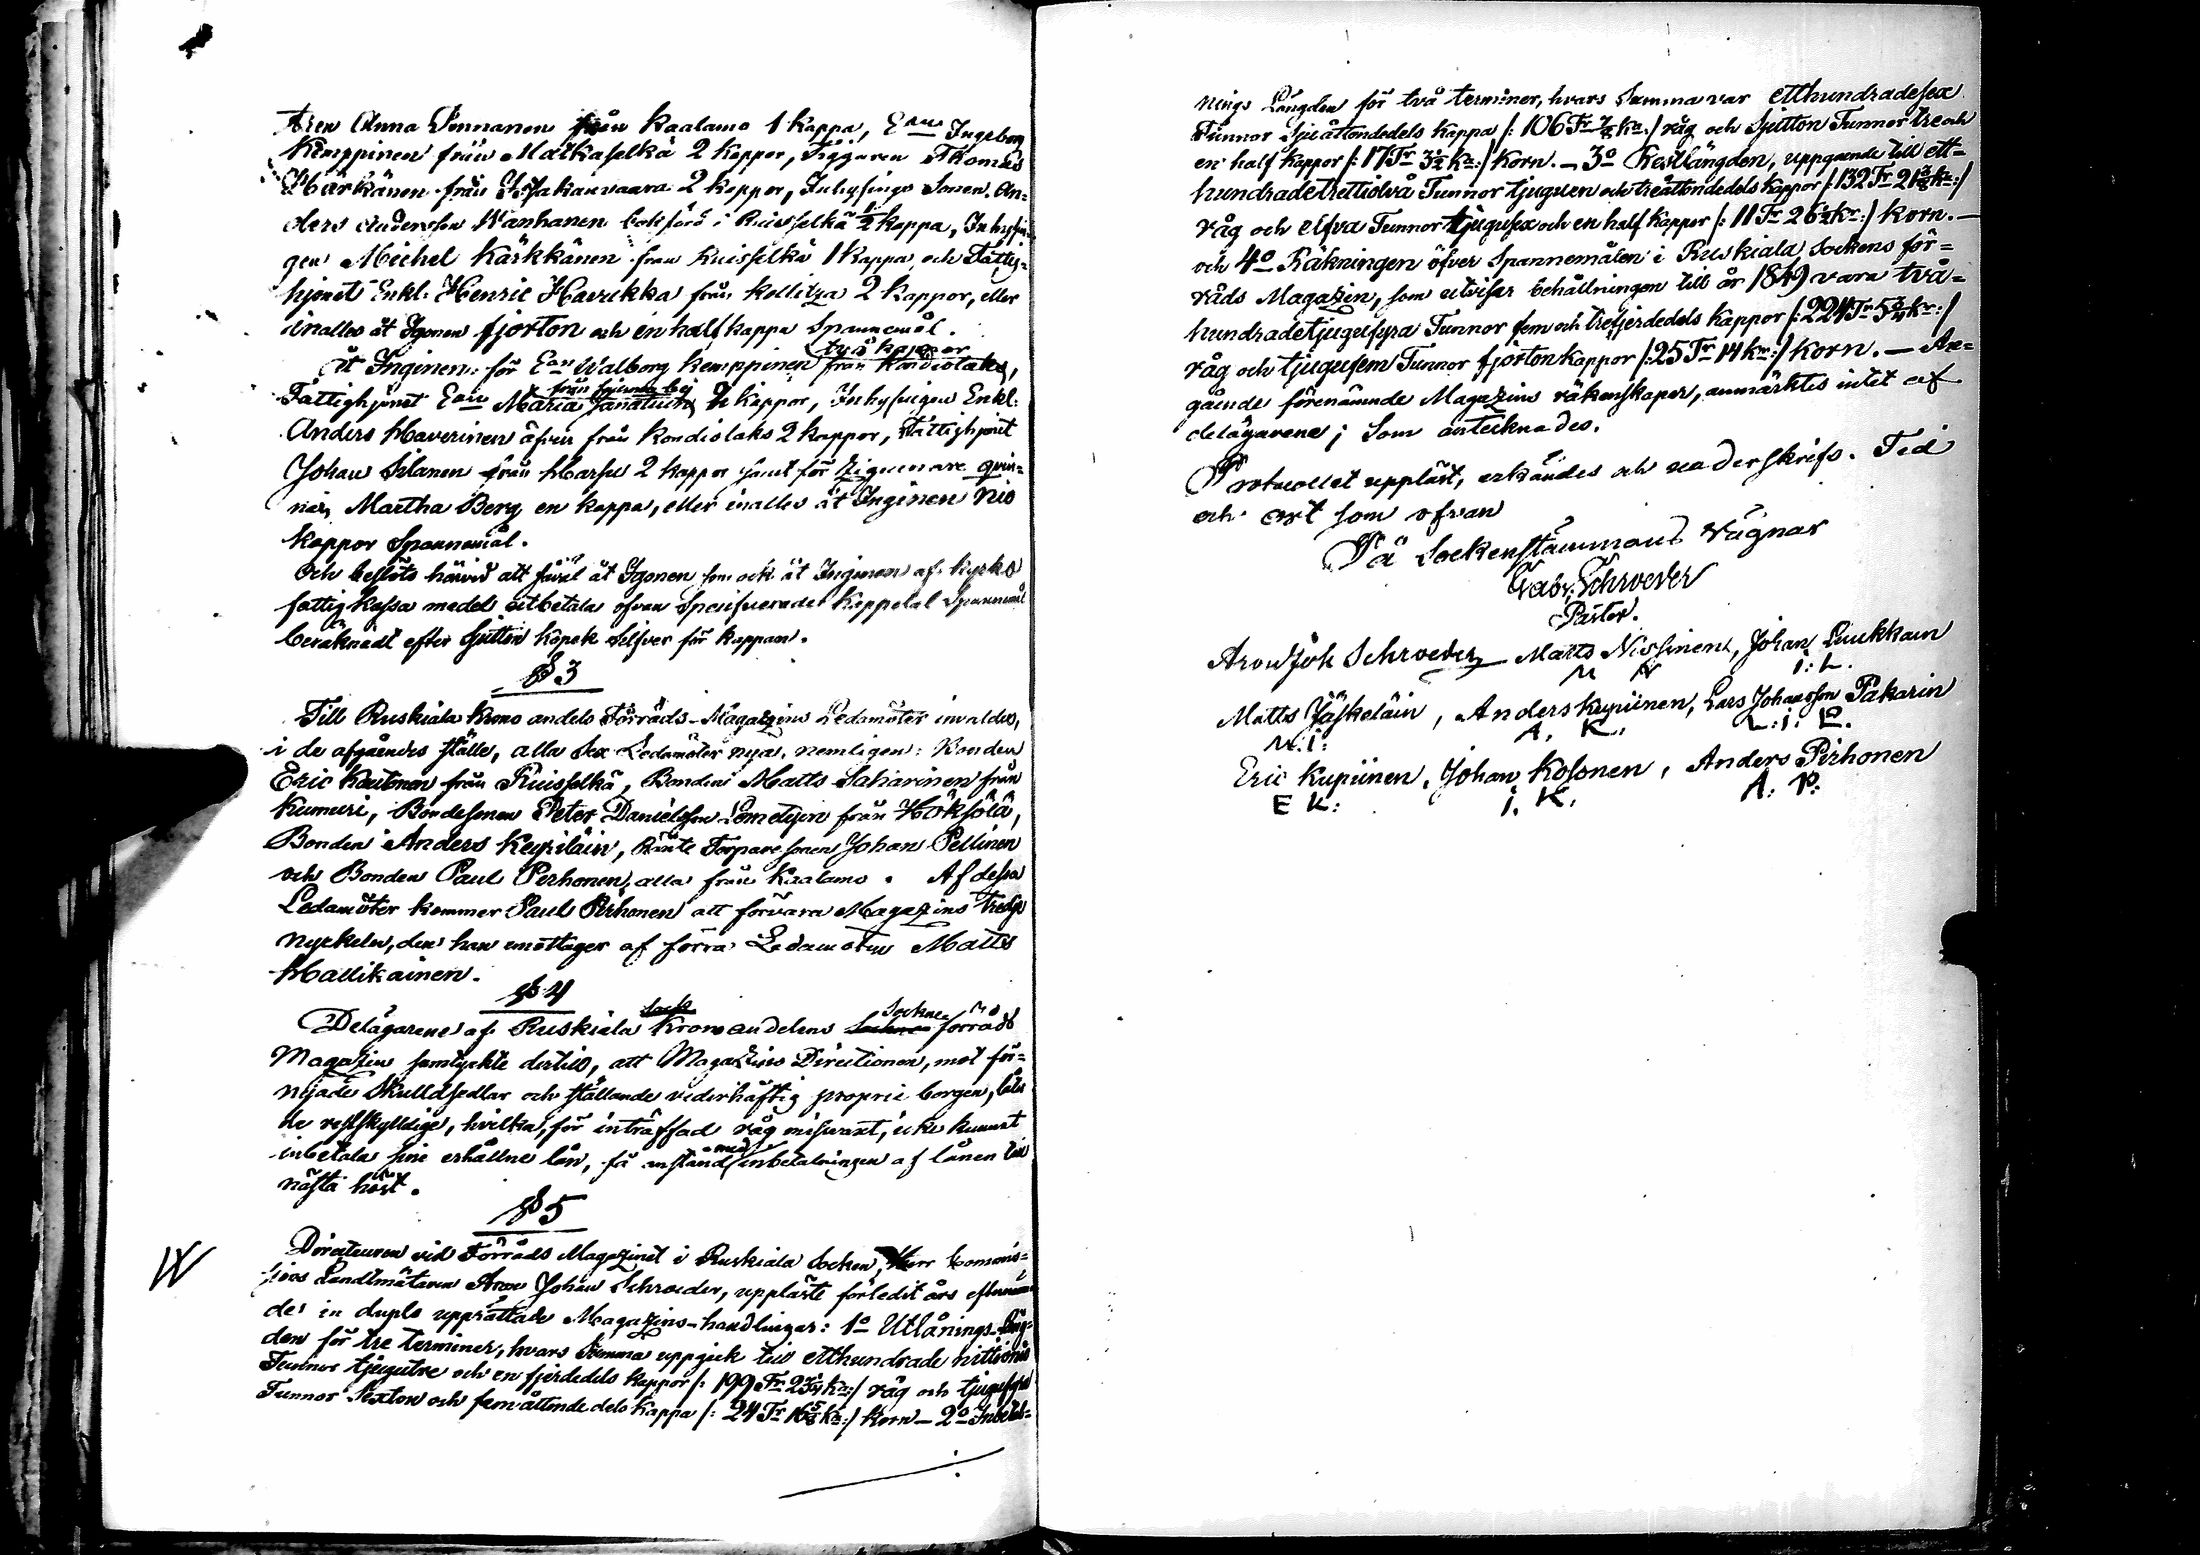 Anna Sennanen från Kaalamo 1 kappa, E<sup>an</sup> Ingeborg
Kemppinen från Matkaselkä 2 kappor, Tiggaren Thomas
Härkänen från 2 kappor, Inhysings Sonen An-
ders Andersson Wanhanen bokförd i Ruisselkä ½ kappa, Inhysin-
gen Michel Kärkkänen från Ruisselkä 1 Kappa, och Fattig-
hjonet Enkl: Henric Havukka från Kollitza 2 kappor, eller
inalles åt Igonen fjorton och en half kappa Spannemål.
åt Inginen: för E<sup>an</sup> Walborg Kemppinen två kappor från Kondiolaks,
Fattighjonet E<sup>an</sup> Maria från kappor, Inhysingen Enkl:
Anders Haverinen äfven från Kondislaks 2 kappor, Fattighjonet
Johan Silanen från Harsu 2 kappor samt för Zigenare qvin-
nan Martha Berg en kappa, eller inalles åt Inginen nio
kappor Spannemål.
Och beslöts härvid att såväl åt Igonen som ock åt Inginen af kyrko
fattig kassa medel utbetala ofvan Specifiserade Kappetal Spannemål
beräknadt efter Sjutton kopek Silfver för kappan.
§ 3
Till Ruskiala Krono andels Förråds-Magazins Ledamöter invaldes,
i de afgåendes ställe, alla Sex Ledamöter nya, nemligen: Bonden
Eric Kautonen från Ruisselkä, Bonden Matts Saharinen från
Kumuri, Bondesonen Peter Danielsson Lemetyin från Höksölä,
Bonden Anders Keyriläin, Torpare sonen Johan Pellinen
och Bonden Paul Perhonen, alla från Kaalamo. Af dessa
Ledamöter kommer Paul Pirhonen att förvara Magazins tredje
nyckeln, den han emottager af förra Ledamoten Matts
Hallikainen.
§ 4
Delägarene af Ruskiala Krono andelens Sockne förråds
Magazin samtyckte dertill, att Magazins Directionen, mot för-
nyade Skulldsedlar och ställande vederhäftig proprie borgen, låta
de restskyldige, hvilka, för inträffad råg missvext, icke kunnat
inbetala sine erhållne lån, få anstånd med inbetalningen af lånen till
nästa höst.
§ 5
Directeuren vid Förråds Magazinet i Ruskiala Socken, Herr Commis-
sions Landtmätaren Arvn Johan Schroeder, uppläste förledit års eftennäm-
de: in duplo upprättade Magazins-handlingar: 1<sup>o</sup> Utlånings Läng-
den för tre terminer, hvars Summa uppgick till etthundrade nittionio
Tunnor tjugutre och en fjerdedels kappor /: 199 T<sup>r</sup> 23¼ k<sup>r</sup>:/ råg och tjugufyra
Tunnor Sexton och fem åttondedels kappa /: 24 T<sup>r</sup> 16⅝ k<sup>r</sup>:/ Korn – 2<sup>o</sup> Inbetal-
nings Längden för två terminer, hvars Summa var etthundradesex
Tunnor Sju åttondedels kappa /: 106 T<sup>r</sup> ⅞ k<sup>a</sup>:/ råg och Sjutton Tunnor tre och
en half kappor /: 17 T<sup>r</sup> 3½ k<sup>r</sup>:/ Korn. – 3<sup>o</sup> Restlängden, uppgående till ett-
hundradetrettiotvå Tunnor tjuguen och tre åttondedels kappor /: 132 T<sup>r</sup> 21⅜ k<sup>r</sup>:/
råg och elfva Tunnor tjugusex och en half kappor /: 11 T<sup>r</sup> 26½ k<sup>r</sup>:/ Korn. –
och 4<sup>o</sup> Räkningen öfver Spannemålen i Ruskiala Sockens för-
råds Magazin, som utvisar behållningen till år 1849 vara två-
hundradetjugufyra Tunnor fem och trefjerdedels kappor /: 224 T<sup>r</sup> 5¾ k<sup>r</sup>:/
råg och tjugufem Tunnor fjorton kappor /: 25 T<sup>r</sup> 14 k<sup>r</sup>:/ Korn. – An-
gående förenämnde Magazins räkenskaper, anmärktes intet af
delägarene; Som antecknades.
Protocollet uppläst, erkändes och underskrifs. Tid
och ort som ofvan
På Sockenstämmans vägnar
Gabr. Schroeder
Pastor.
Arvn Joh Schroeder Matts Nissinen, Johan Luukkain
M N I: L.
Matts Jäskeläin, Anders Kupiinen, Lars Johansson Pakarin
M. I: A. K. L: I: P.
Eric Kupiinen, Johan Kosonen, Anders Pirhonen
E K: I. K. A: P: